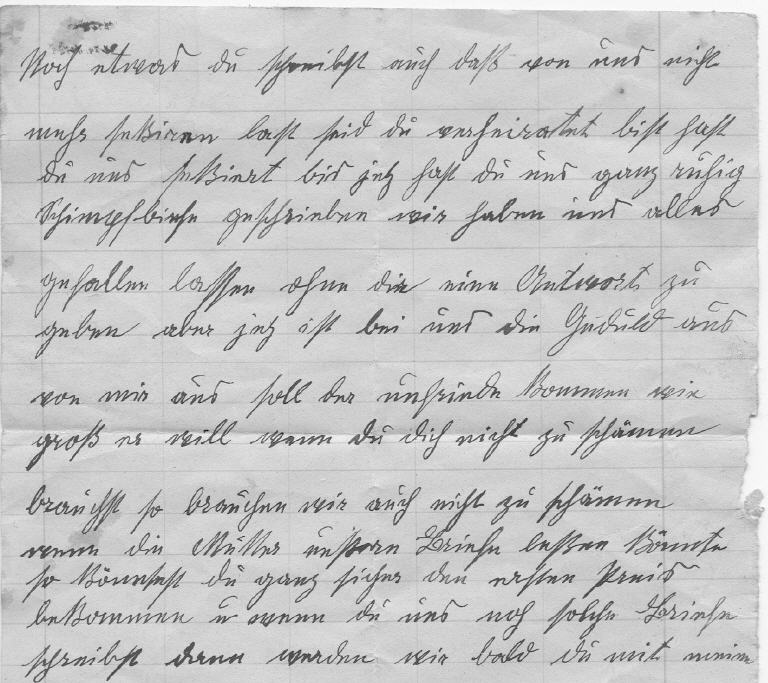 Noch etwas du schreibst auch daß von uns nicht
mehr seßiren last seid du verheiratet bist hast
du uns seßiert bis jetz hast du uns ganz ruhig
Schimpfbiefe geschrieben wir haben uns alles
gefallen lassen ohne dir eine Antwort zu
geben aber jetz ist bei uns die Guduld aus
von mir aus soll der unfriede kommen wie
groß er will wenn du dich nicht zu schämen
brauchst so brauchen wir auch nicht zu schämen
wenn die Mutter Briefe leßen könnte
so könntest du ganz sicher den ersten Preis
bekommen u wenn du uns noch solche Briefe
schreibst dann werden wir bald du mit meine